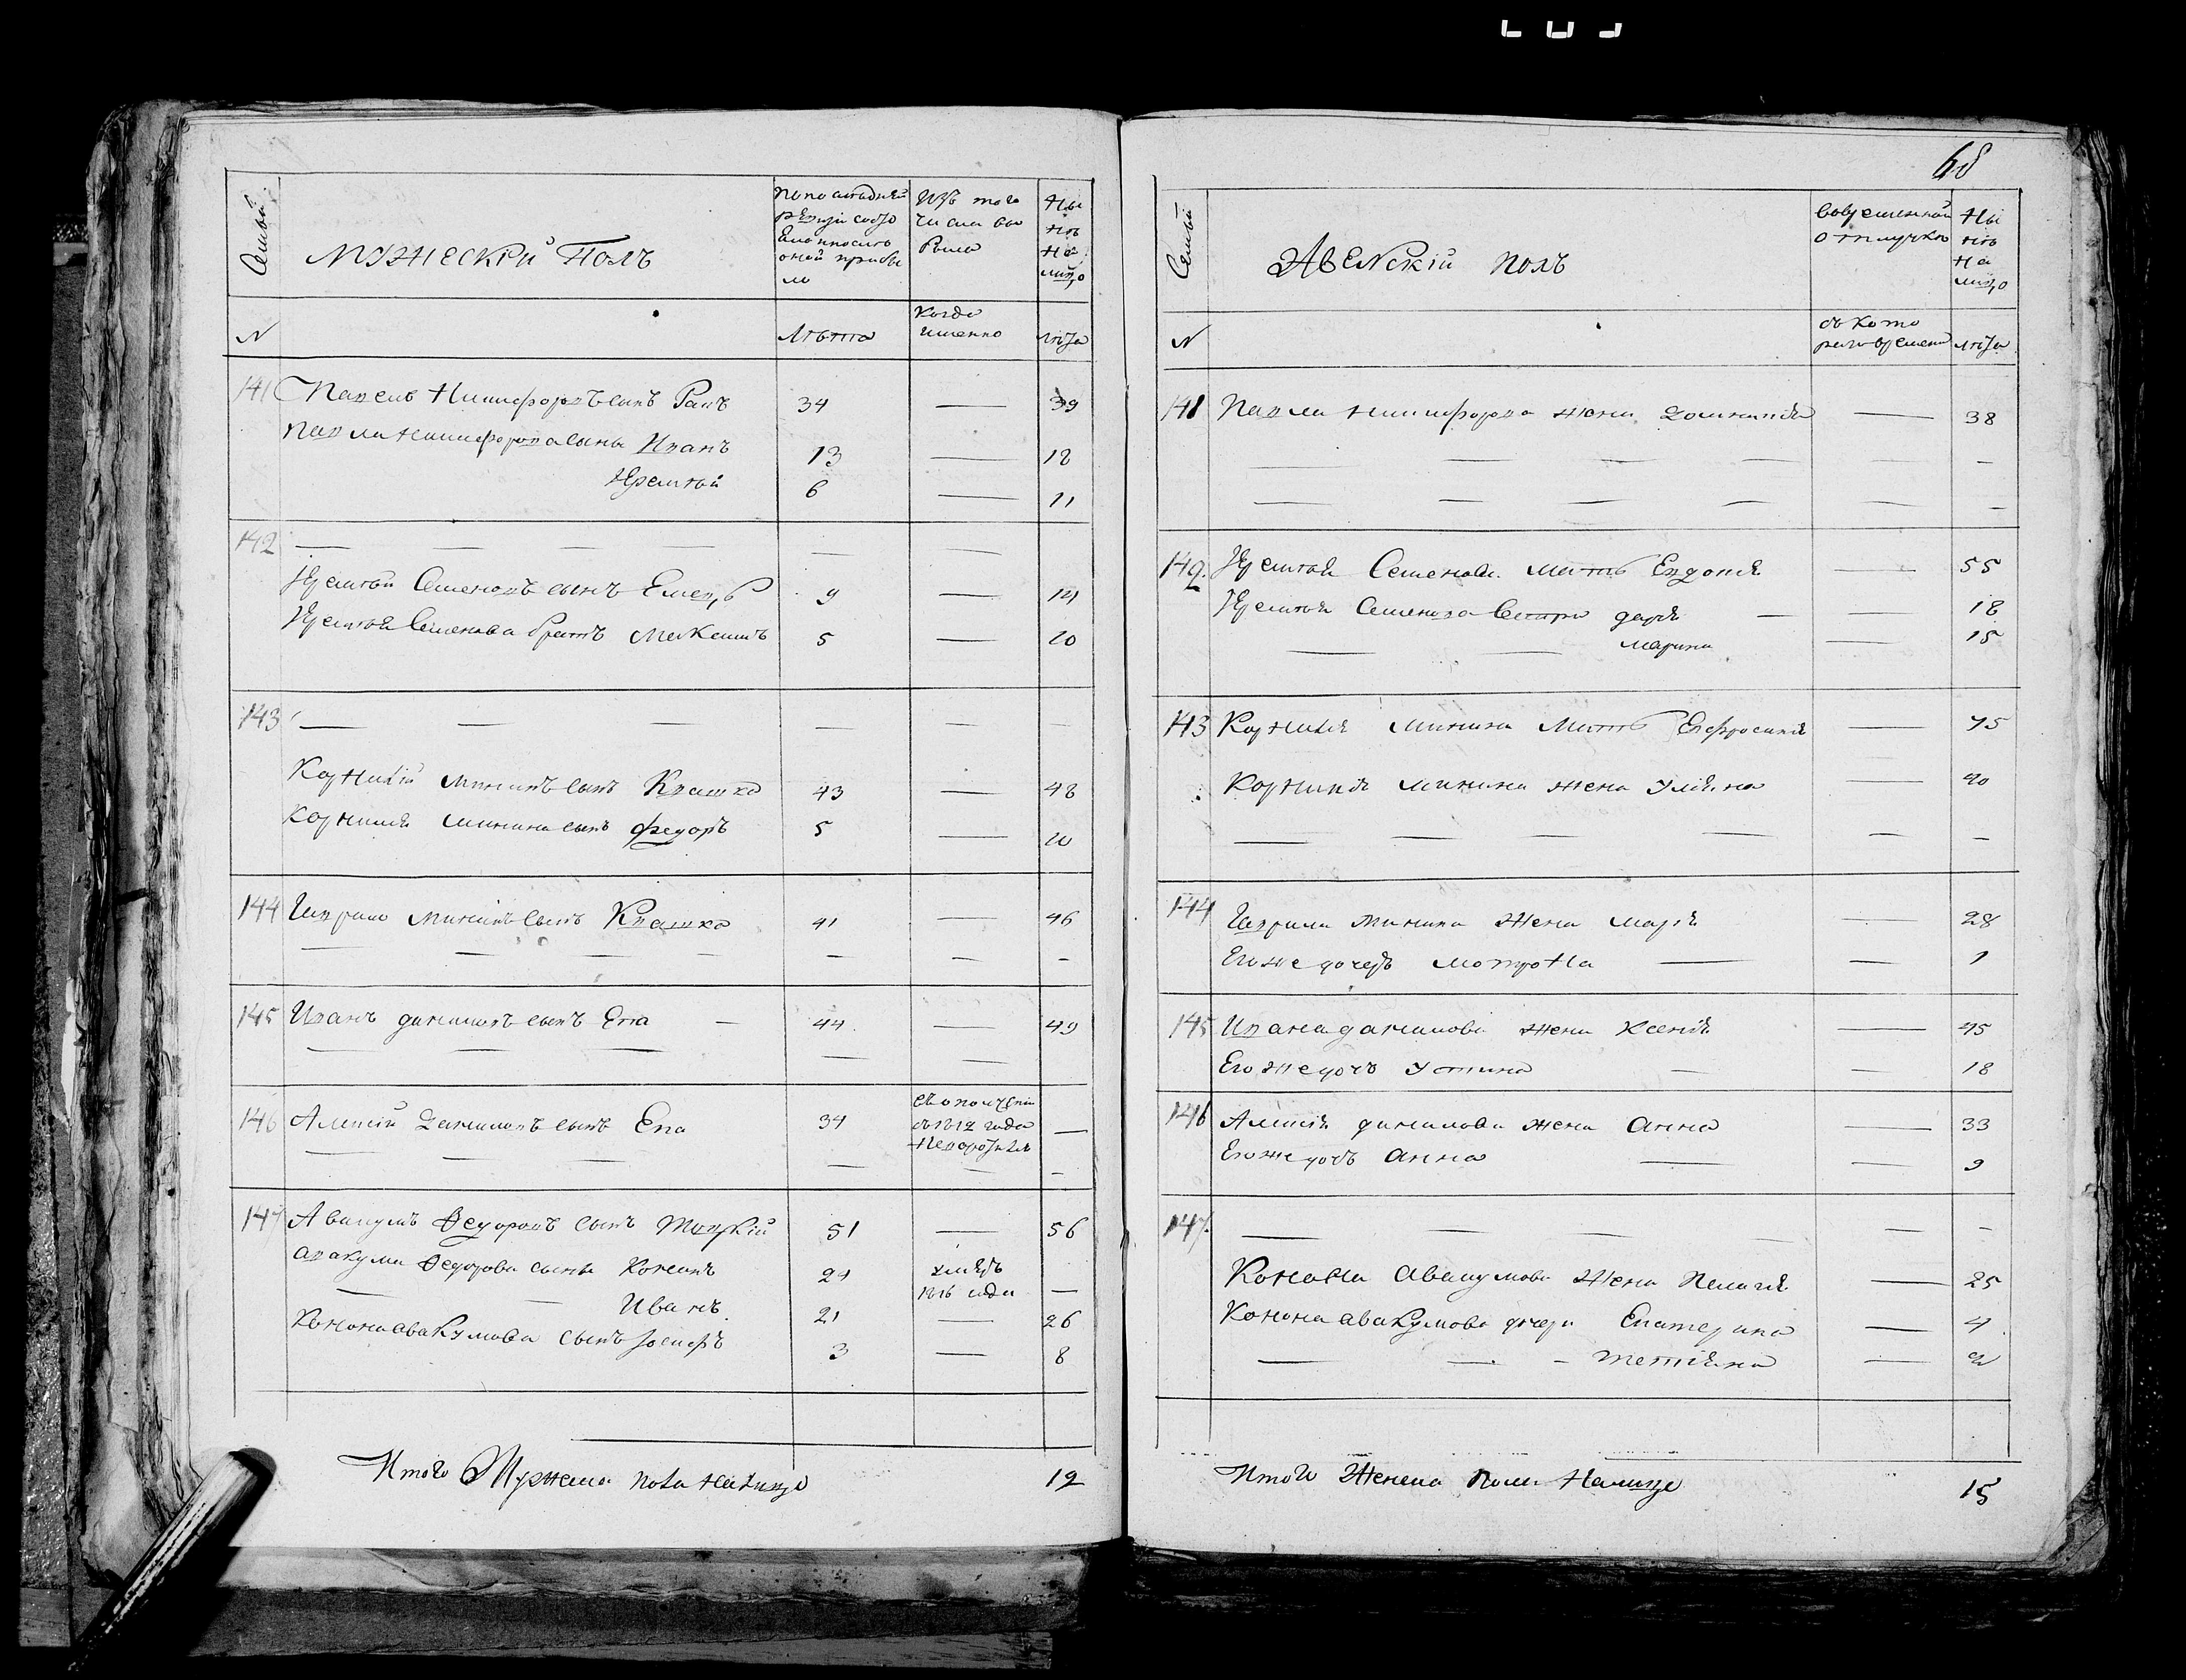 Семьи
Мужескій Полъ
По последней
ревизіи состо
яло и после
оной прибы
ло
Изъ того
числа вы
было
Ны
не
на
лицо
N
Лета
Когда
именно
лета
141 Павелъ Никифоровъ сынъ Ракъ 34 — 39
Павла Никифорова сыны Иванъ 13 — 18
Яремей 6 — 11
142 — — — — — —
Яремей Семеновъ сынъ Емецъ 9 — 14
Яремея Семенова братъ Максимъ 5 — 10
143 — — — — — —
Корнилій Мининъ сынъ Квашка 43 — 48
Корнилія Минина сынъ Федоръ 5 — 10
144 Гаврило Мининъ сынъ Квашка 41 — 46
— — — — — — —
145 Иванъ Даниловъ сынъ Епа — 44 — 49
— — — — —
146 Алексій Даниловъ сынъ Епа 34
съ ополченія
съ 1812 года
невозвратился
—
— — — — — —
147 Авакумъ Федоровъ сынъ 51 — 56
Авакума Федорова сыны Кононъ 24 умеръ
1816 года —
— — Иванъ 21 — 26
Конона Авакумова сынъ Іосифъ 3 — 8
Итого Мужеска пола налицо 12
68
Семьи
Женскій полъ
Во временной
отлучке
Ны
не
на
лицо
N
съ кото
раго времени
лета
141 Павла Никифорова жена Домникія — 38
— — — — — —
— — — — — —
142. Яремея Семенова мать Евдокія — 55
Яремея Семенова сестры Дарія — 18
— — Марина — 15
143 Корнилія Минина мать Евфросинія — 75
Корнилія Минина жена Уліяна — 40
— — — — — —
144 Гаврила Минина жена Марія — 28
Его же дочеръ Мотрона — — 1
145 Ивана Данилова жена Ксенія — 45
Его же дочъ Устина — — 18
146 Алексія Данилова жена Анна — 33
Его же дочъ Анна — — 9
147. — — — — — —
Конона Авакумова жена Пелагія — 25
Конона Авакумова дочери Екатерина — 4
— — — Татіяна — 2
Итого Женска пола налицо 15